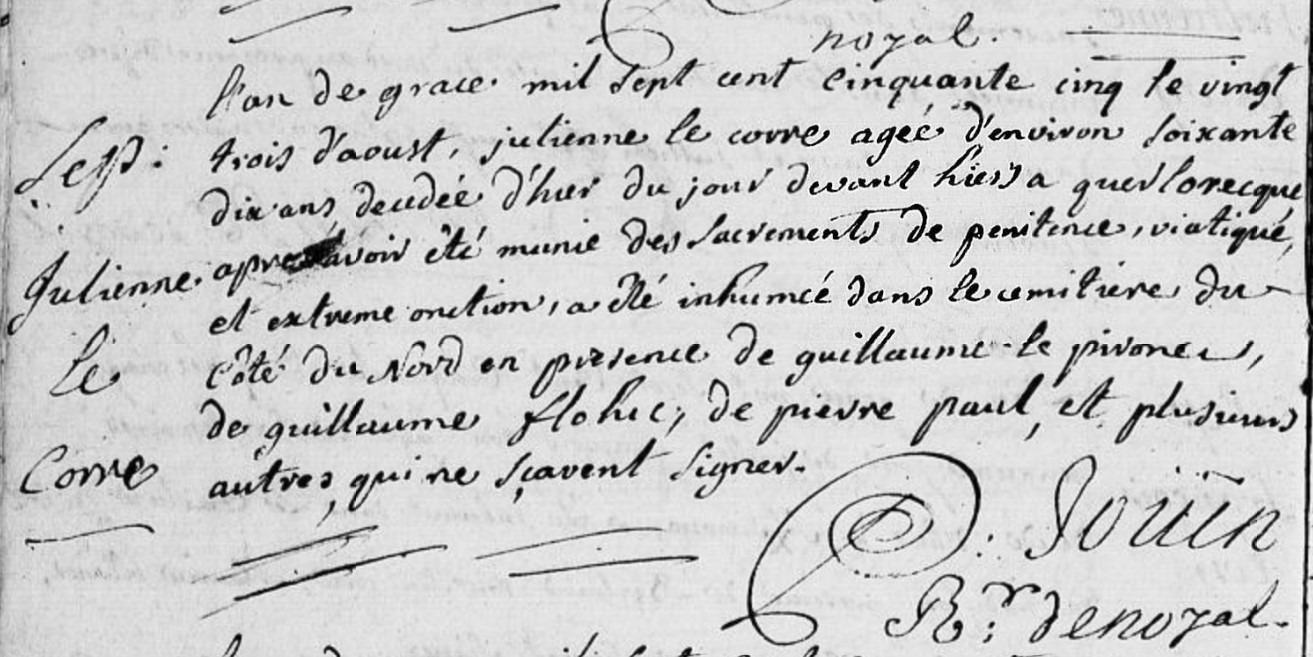 noyal.
l'an de grace mil sept cent cinquante cinq le vingt
Sep: trois d'aoust, julienne le corre ageé d'environ soixante
dix ans decedée d'hier du jour devant hier a querlorecque
Julienne apres avoir été munie des sacrements de penitence, viatique,
et extreme onction, a été inhumée dans le cemitiere du
Le côté du Nord en presence de guillaume le
de guillaume flohic, de pierre paul, et plusieurs
Corre autres, qui ne sçavent signer.
D. Joüin
R.r: de noyal.